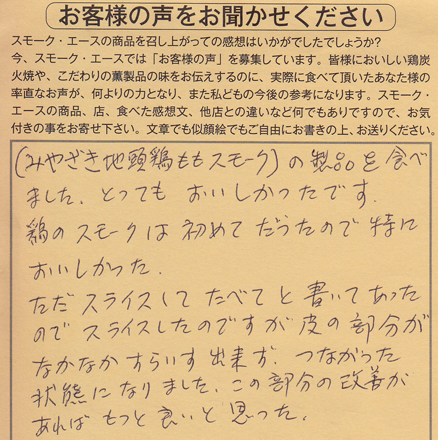 お客様の声をお聞かせください
スモーク・エースの商品を召し上がっての感想はいかがでしたでしょうか?
今、スモーク・エースでは「お客様の声」を募集しています。皆様においしい鶏炭
火焼や、こだわりの薫製品の味をお伝えするのに、実際に食べて頂いたあなた様の
率直なお声が、何よりの力となり、また私どもの今後の参考になります。スモーク・
エースの商品、店、食べた感想文、他店との違いなど何でもありですので、お気
付きの事をお寄せ下さい。文章でも似顔絵でもご自由にお書きの上、お送りください。
(みやざき地頭鶏ももスモーク)の製品を食べ
ました。とっても おいしかったです.
鶏のスモークは初めて だったので特に
おいしかった.
ただ スライスして たべてと書いてあった
ので スライスしたのですが皮の部分が
なかなか すらいす 出来ず. つながった
状態になりました。この部分の改善が
あれば もっと良いと思った.